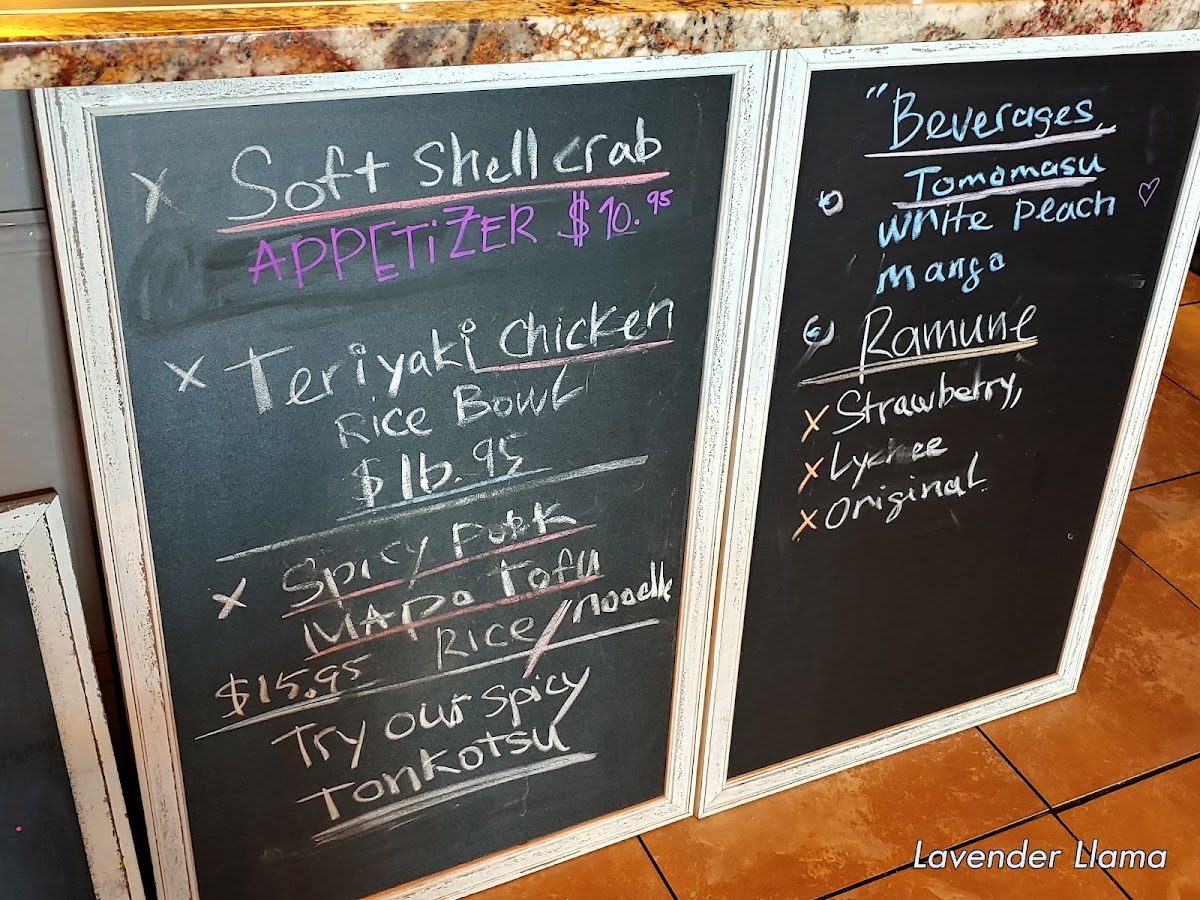 x Soft Shell crab
APPETiZER $10.95
x Teriyaki chicken
Rice Bowl
$16.95
x Spicy Pork
MAPo Tofu
$15.95 Rice/noodle
Try our spicy
Tonkotsu
"Beverages
Tomomasu
white peach
mango
Ramune
x Strawberry,
x Lychee
x original
Lavender Llama